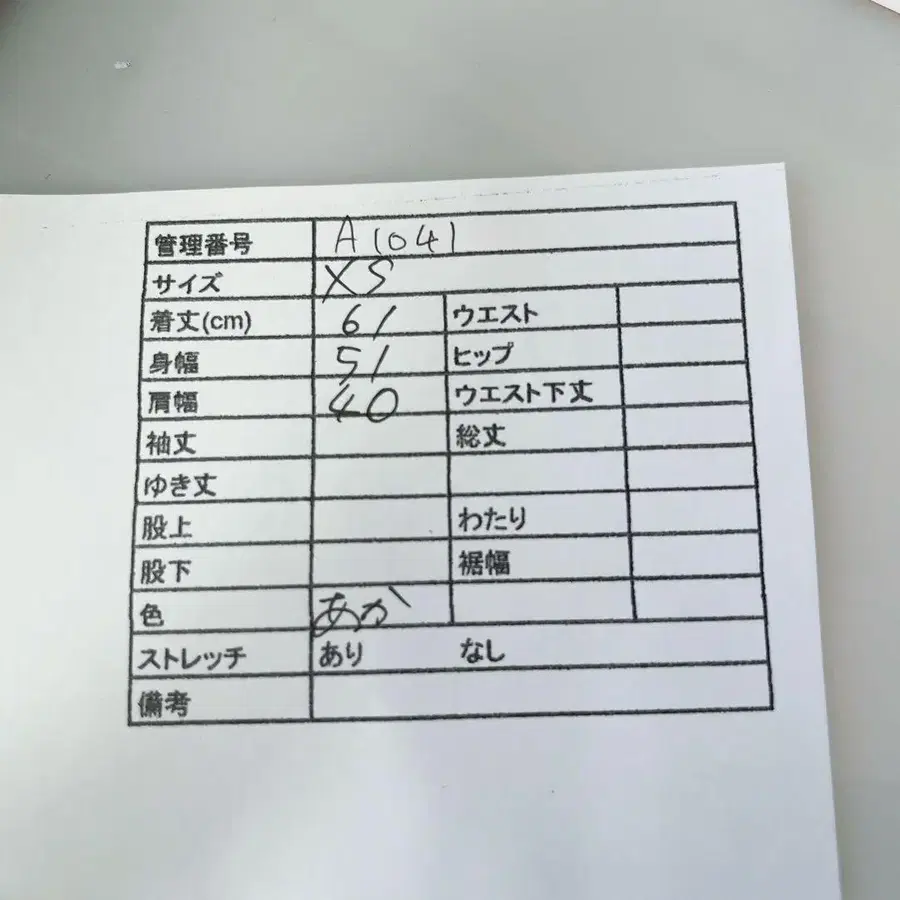 管理番号 A1041
サイズ XS
着丈(cm) 61 ウエスト
身幅 51 ヒップ
肩幅 40 ウエスト下丈
袖丈 総丈
ゆき丈
股上 わたり
股下 裾幅
色 あか
ストレッチ あり なし
備考